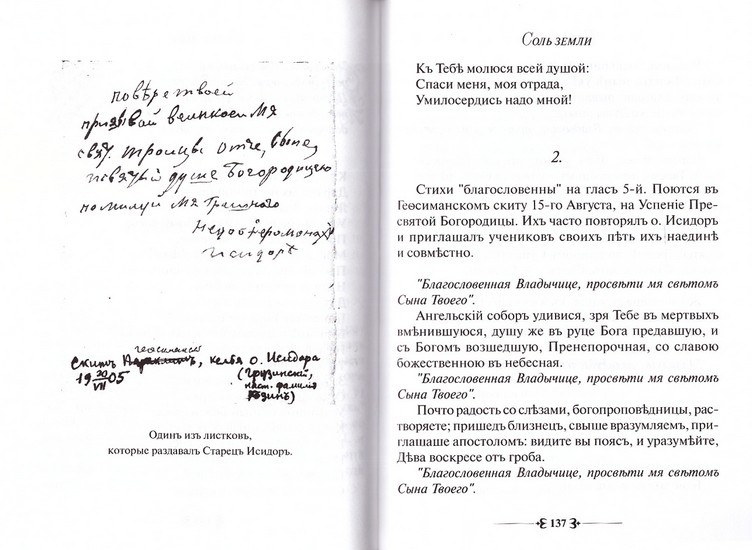 повѣре твоей
призывай великое имя
свят. троицы отче, сыне,
и святый душе Богородицею
помилуй мя грѣшнаго
Недос. іеромонахъ
Исидоръ
геѳсиманскій
Скитъ, келья о. Исидора
19 20/VII 05
(Грузинскій,
наст. фамилія
Одинъ изъ листковъ,
которые раздавалъ Старецъ Исидоръ.
Соль земли
Къ Тебѣ молюся всей душой:
Спаси меня, моя отрада,
Умилосердись надо мной!
2.
Стихи "благословенны" на гласъ 5-й. Поются въ
Геѳсиманскомъ скиту 15-го Августа, на Успеніе Пре-
святой Богородицы. Ихъ часто повторялъ о. Исидоръ
и приглашалъ учениковъ своихъ пѣть ихъ наединѣ
и совмѣстно.
"Благословенная Владычице, просвѣти мя свѣтомъ
Сына Твоего".
Ангельскій соборъ удивися, зря Тебе въ мертвыхъ
вмѣнившуюся, душу же въ руце Бога предавшую, и
съ Богомъ возшедшую, Пренепорочная, со славою
божественною въ небесная.
"Благословенная Владычице, просвѣти мя свѣтомъ
Сына Твоего".
Почто радость со слѣзами, богопроповѣдницы, рас-
творяете; пришедъ близнецъ, свыше вразумляемъ, при-
глашаше апостоломъ: видите вы поясъ, и уразумѣйте,
Дѣва воскресе отъ гроба.
"Благословенная Владычице, просвѣти мя свѣтомъ
Сына Твоего".
137